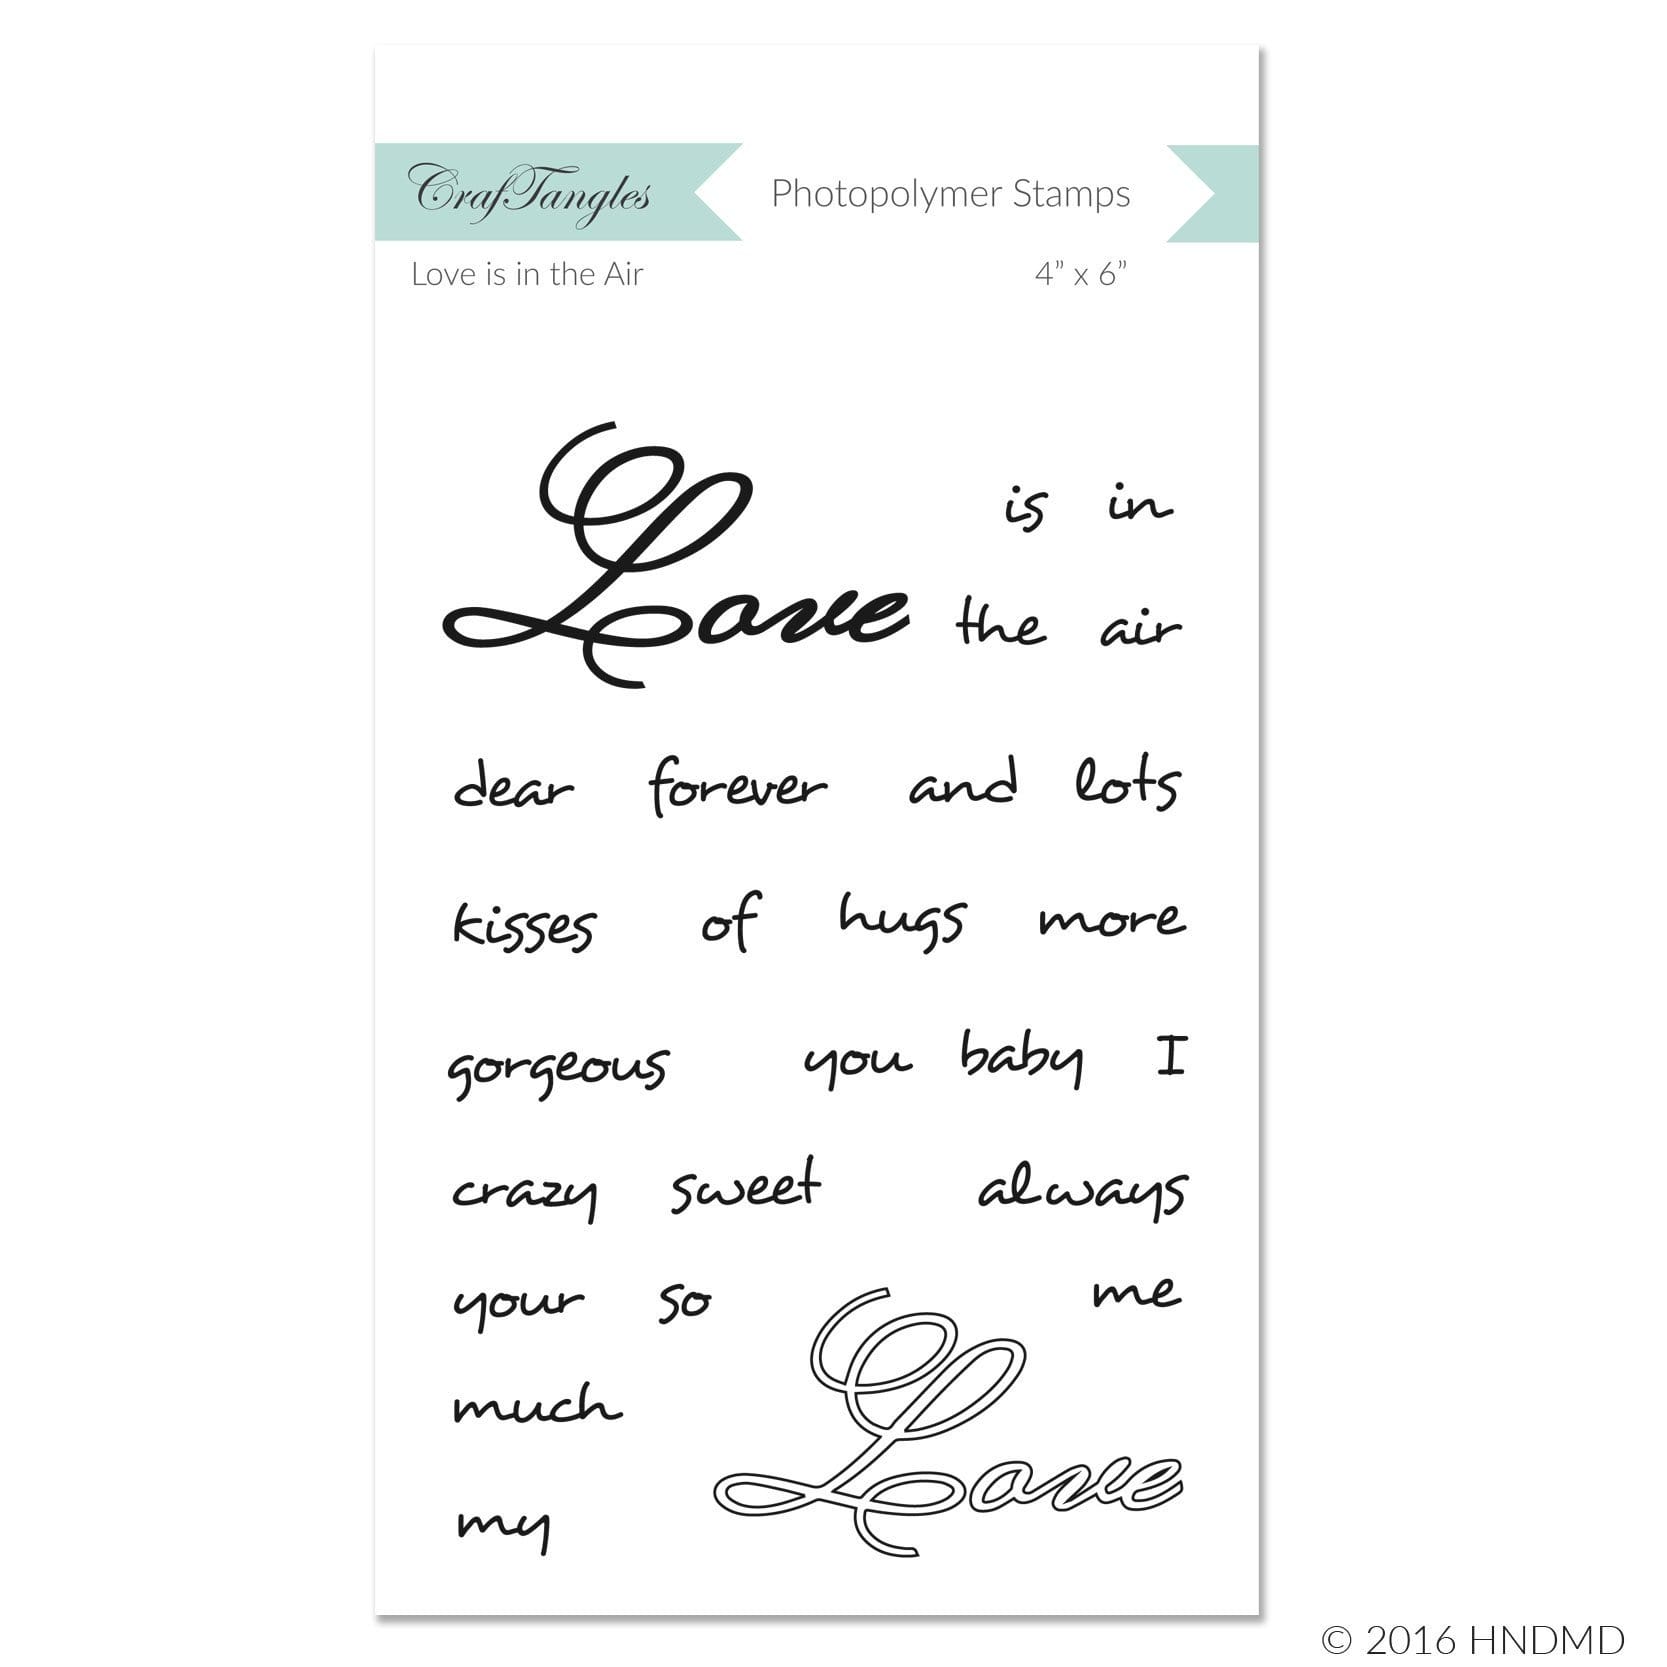 CrafTangles Photopolymer Stamps
Love is in the Air 4” x 6”
Love is in
the air
dear forever and lots
kisses of hugs more
gorgeous you baby I
crazy sweet always
your so me
much
Love
my
© 2016 HNDMD